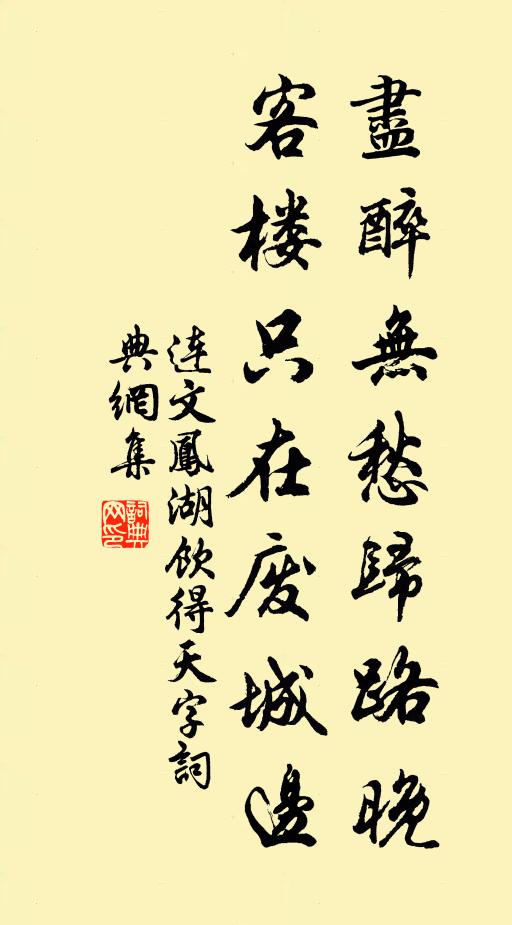 盡醉無愁歸路晚
客楼只在废城邊
连文鳳湖飲得天字詞
典網集
詞典网印